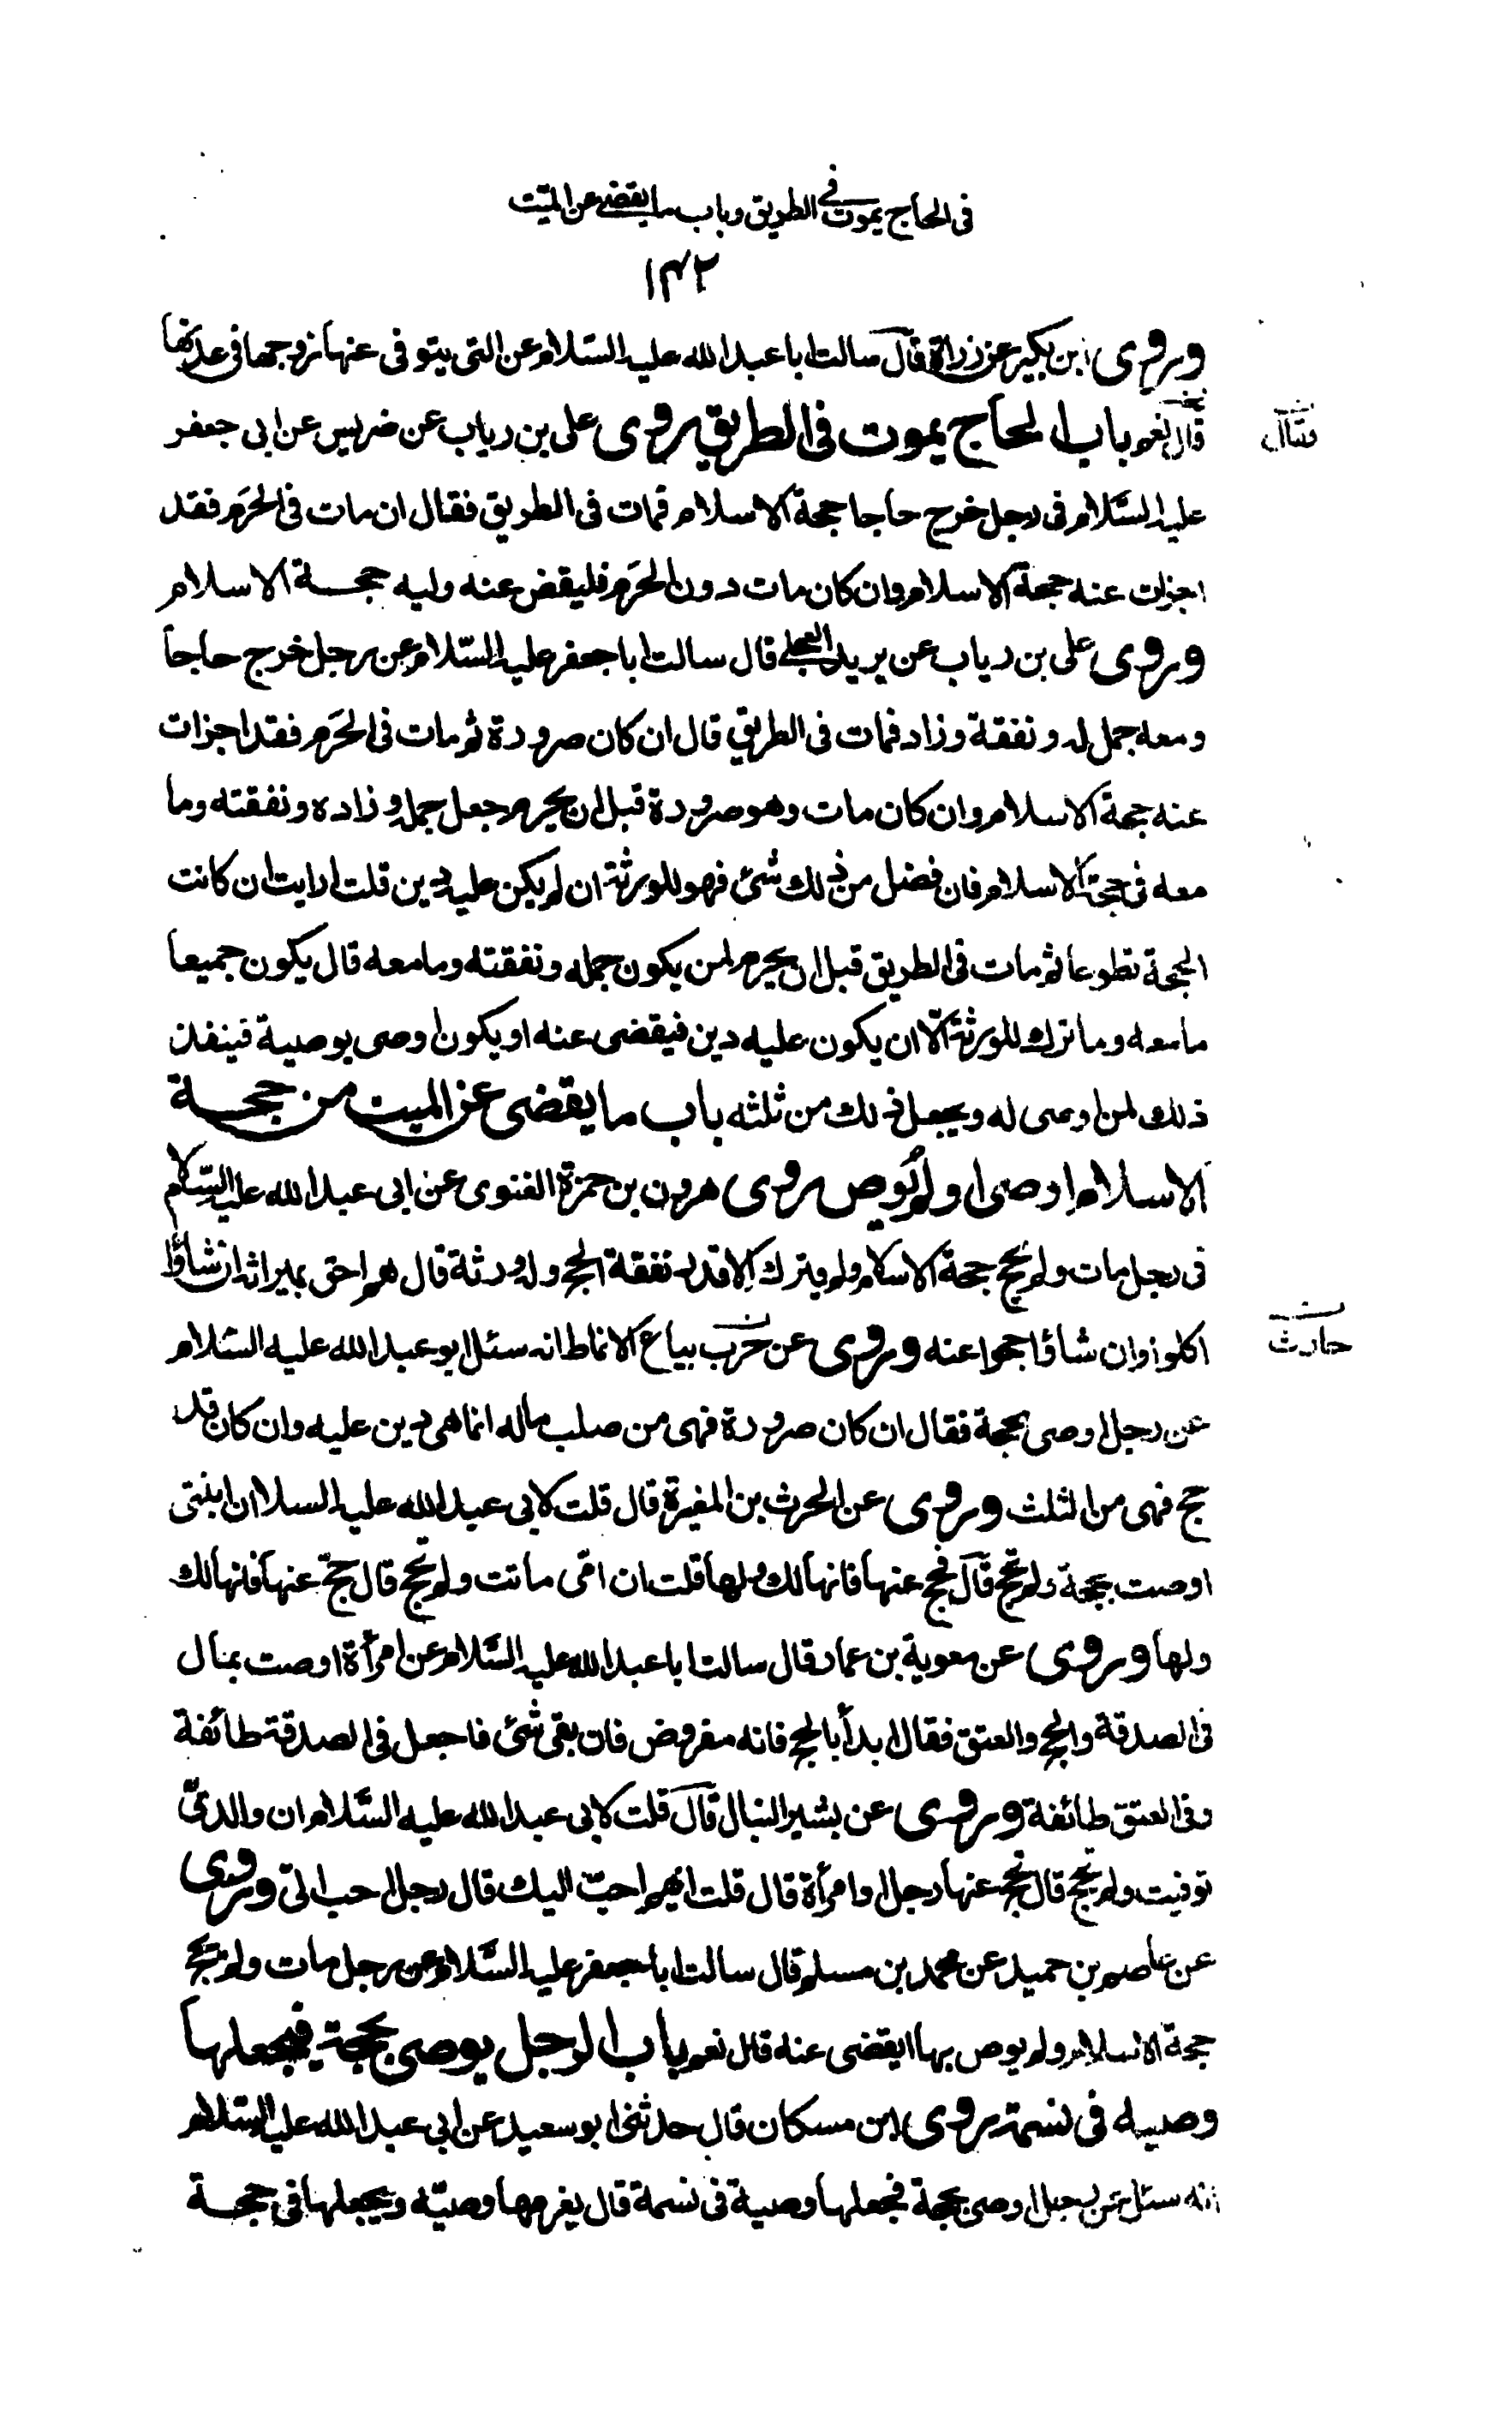 فى الحاج يموت فى الطريق وباب ما يقضى عن الميّت
١٤٢
وروى ابن بكير عن زرارة قال سالت ابا عبد الله عليه السّلام عن التى يتوفى عنها زوجها فى عدتها
قال نعم باب الحاج يموت فى الطريق روى على بن رياب عن ضريس عن ابى جعفر
فقال
عليه السّلام فى رجل خرج حاجا حجة الاسلام فمات فى الطريق فقال ان مات فى الحَرَم فقد
اجزات عنه حجة الاسلام وان كان مات دون الحَرَم فليقض عنه وليه حجة الاسلام
وروى على بن رياب عن بريد العجلى قال سالت ابا جعفر عليه السّلام عن رجل خرج حاجاً
ومعه جمل له ونفقة وزاد فمات فى الطريق قال ان كان صرورة ثم مات فى الحَرَم فقد اجزات
عنه حجة الاسلام وان كان مات وهو صرورة قبل ان يحرم جعل جمله وزاده ونفقته وما
معه فى حجة الاسلام فان فضل من ذلك شئ فهو للورثة ان لم يكن عليه دين قلت ارايت ان كانت
الحجة تطوعا ثم مات فى الطريق قبل ان يحرم لمن يكون جمله ونفقته وما معه قال يكون جميعا
ما معه وما ترك للورثة الّا ان يكون عليه دين فيقضى عنه او يكون اوصى بوصية فينفذ
ذلك لمن اوصى له ويجعل ذلك من ثلثه باب ما يقضى عن الميت من حجة
الاسلام اوصى او لم يُوص روى هرون بن حمزة الغنوى عن ابى عبد الله عليه السّلام
فى رجل مات ولم يحج حجة الاسلام ولم يترك الا قدر نفقة الحج وله ورثة قال هم احق بميراثه ان شاؤا
اكلوا وان شاؤا حجوا عنه وروى عن حَرَب بياع الانماط انه سئل ابو عبد الله عليه السّلام
حارث
عن رجل اوصى بحجة فقال ان كان صرورة فهى من صلب ماله انما هى دين عليه وان كان قد
حج فهى من الثلث وروى عن الحرث بن المغيرة قال قلت لابى عبد الله عليه السلا ان ابنتى
اوصت بحجة ولم تحج قال فحج عنها فانها لك ولها قلت ان امّى ماتت ولم تحج قال حجّ عنها فانها لك
ولها وروى عن معوية بن عمار قال سالت ابا عبد الله عليه السّلام عن امرأة اوصت بمال
فى الصدقة والحج والعتق فقال ابدأ بالحج فانه مفروض فان بقى شئ فاجعل فى الصدقة طائفة
وفى العتق طائفة وروى عن بشير النبال قال قلت لابى عبد الله عليه السّلام ان والدتىّ
توفيت ولم تحج قال يحج عنها رجل او امرأة قال قلت ايهم احبّ اليك قال رجل احب الىّ وروى
عن عاصم بن حميد عن محمد بن مسلم قال سالت ابا جعفر عليه السّلام عن رجل مات ولم يحج
حجة الاسلام ولم يوص بها ايقضى عنه قال نعم باب الرجل يوصى بحجة فيجعلها
وصيه فى نسمة روى ابن مسكان قال حدثنى ابو سعيد عن ابى عبد الله عليه السّلام
انه سئل عن رجل اوصى بحجة فجعلها وصية فى نسمة قال يغرمها وصيّه ويجعلها فى حجة